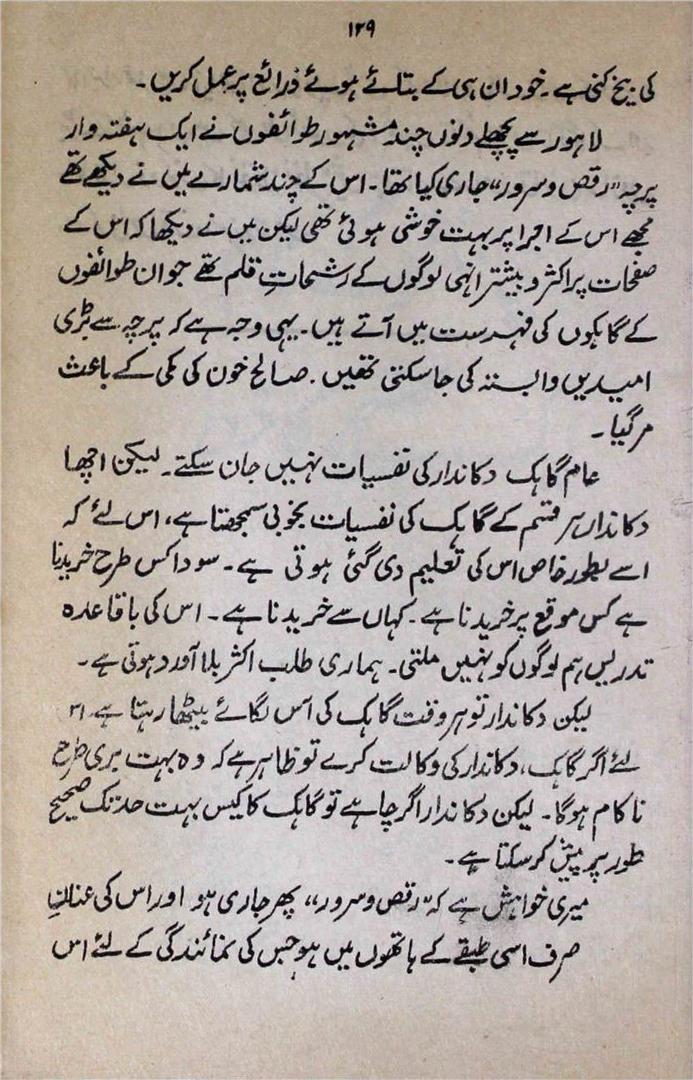 ۱۲۹
کی بیخ کنی ہے۔ خود ان ہی کے بتائے ہوئے ذرائع پر عمل کریں۔
لاہور سے پچھلے دنوں چند مشہور طوائفوں نے ایک ہفتہ وار
پرچہ "رقص و سرور" جاری کیا تھا۔ اس کے چند شمارے میں نے دیکھے تھے
مجھے اس کے اجرا پر بہت خوشی ہوئی تھی لیکن میں نے دیکھا کہ اس کے
صفحات پر اکثر و بیشتر انہی لوگوں کے رشحاتِ قلم تھے جو ان طوائفوں
کے گاہکوں کی فہرست میں آتے ہیں۔ یہی وجہ ہے کہ پرچہ سے بڑی
امیدیں وابستہ کی جا سکتی تھیں۔ صالح خون کی کمی کے باعث
مر گیا۔
عام گاہک دکاندار کی نفسیات نہیں جان سکتے۔ لیکن اچھا
دکاندار ہر قسم کے گاہک کی نفسیات بخوبی سمجھتا ہے، اس لئے کہ
اسے بطور خاص اس کی تعلیم دی گئی ہوتی ہے۔ سودا کس طرح خریدنا
ہے کس موقع پر خریدنا ہے۔ کہاں سے خریدنا ہے۔ اس کی باقاعدہ
تدریس ہم لوگوں کو نہیں ملتی۔ ہماری طلب اکثر بلا آورد ہوتی ہے۔
لیکن دکاندار تو ہر وقت گاہک کی آس لگائے بیٹھا رہتا ہے۔ ا۳
لئے اگر گاہک، دکاندار کی وکالت کرے تو ظاہر ہے کہ وہ بہت بری طرح
ناکام ہوگا۔ لیکن دکاندار اگر چاہے تو گاہک کا کیس بہت حد تک صحیح
طور پر پیش کر سکتا ہے۔
میری خواہش ہے کہ "رقص و سرور" پھر جاری ہو اور اس کی عنانِ
صرف اسی طبقے کے ہاتھوں میں ہو جس کی نمائندگی کے لئے اس